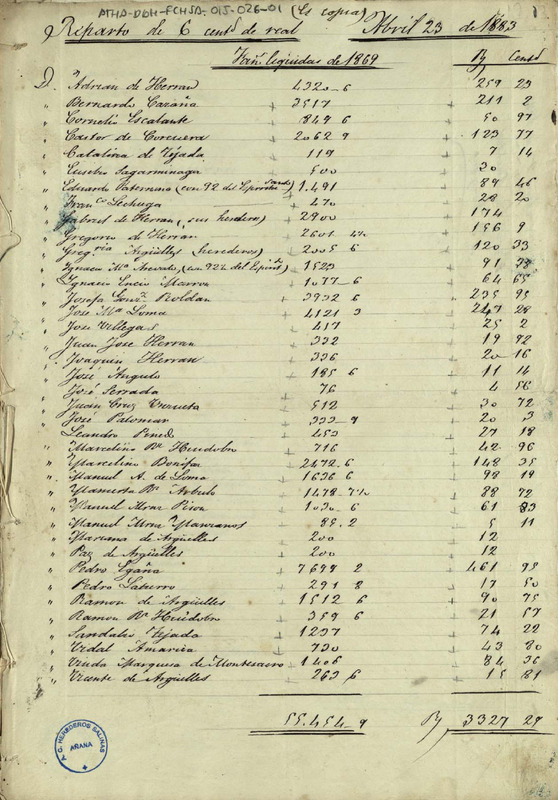 ATHA-DAH-FCHSA-015-026-01 (Es copia)
1
Reparto de 6 cent.s de real Abril 23 de 1883
Fan.s liquidas de 1869 Rs Cent.s
D. Adrian de Herran 4320-6 259 23
" Bernardo Cazaña + 3517 + 211 2
" Cornelio Escalante + 849 6 + 50 97
" Castor de Corcuera + 2062 9 + 123 77
" Catalina de Tejada + 119 + 7 14
" Eusebio Sagarminaga 500 30
" Eduardo Paternina (con 92 del Espíritu Santo) 1.491 + 89 46
" Fran.co Lechuga + 470 28 20
" Gabriel de Herran (sus herederos) 2900 174
" Gregorio de Herran 2601 156 9
" Greg.ria Argüelles (herederos) 2005 6 + 120 33
" Ignacio M.a Arevalo (con 92½ del Espíritu) 1523 91 38
" Ignacio Encio Marron + 1077-6 64 65
" Josefa Gonz.z Roldan + 3932 6 235 95
" José M.a Loma + 4121 3 247 28
" José Villegas 417 25 2
" Juan José Herran 332 + 19 92
" Joaquin Herran + 336 + 20 16
" José Angulo + 185 6 + 11 14
" José Serrada 76 4 56
" Juan Cruz 512 + 30 72
" José Palomar + 333-9 + 20 3
Leandro 453 27 18
" Marcelino R. Huidobro 716 + 42 96
" Marcelino Bonifaz 2472-6 + 148 35
" Manuel A. de Loma + 1636 6 + 98 19
" R. Arbulo 1478-7½ + 88 72
" Manuel 1030-6 + 61 83
" Manuel Manzanos 85.2 5 11
" Mariana de Argüelles 200 12
" Paz de Argüelles 200 12
" Pedro Egaña + 7698 2 + 461 95
" Pedro Laburro 291 8 17 50
" Ramon de Argüelles + 1512 6 + 90 75
" Ramon R. Huidobro + 359 6 + 21 57
" Sandalio Tejada + 1237 + 74 22
" Vidal Amarica 730 43 80
" Viuda Marquesa de Montesacro 1406 + 84 36
" Vicente de Argüelles 263 6 + 15 81
55.454-9 Rs 3327 29
T. C. HEREDEROS SALINAS
ARANA